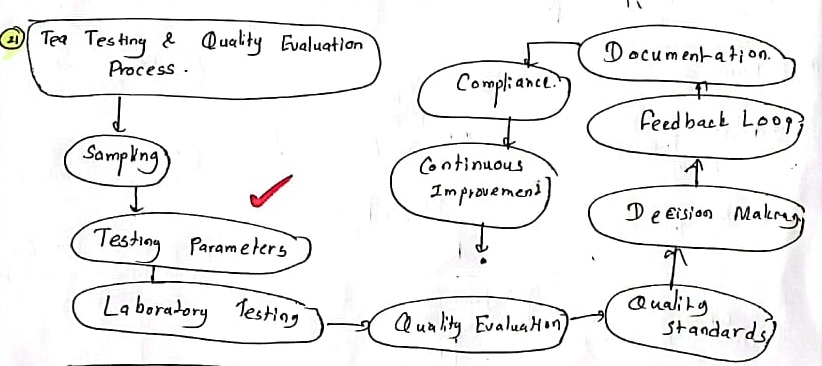 21
Tea Testing & Quality Evaluation
Process.
Sampling
Testing Parameters
Laboratory Testing
Quality Evaluation
Quality
Standards
Decision Making
Feedback Loop
Documentation.
Compliance.
Continuous
Improvement